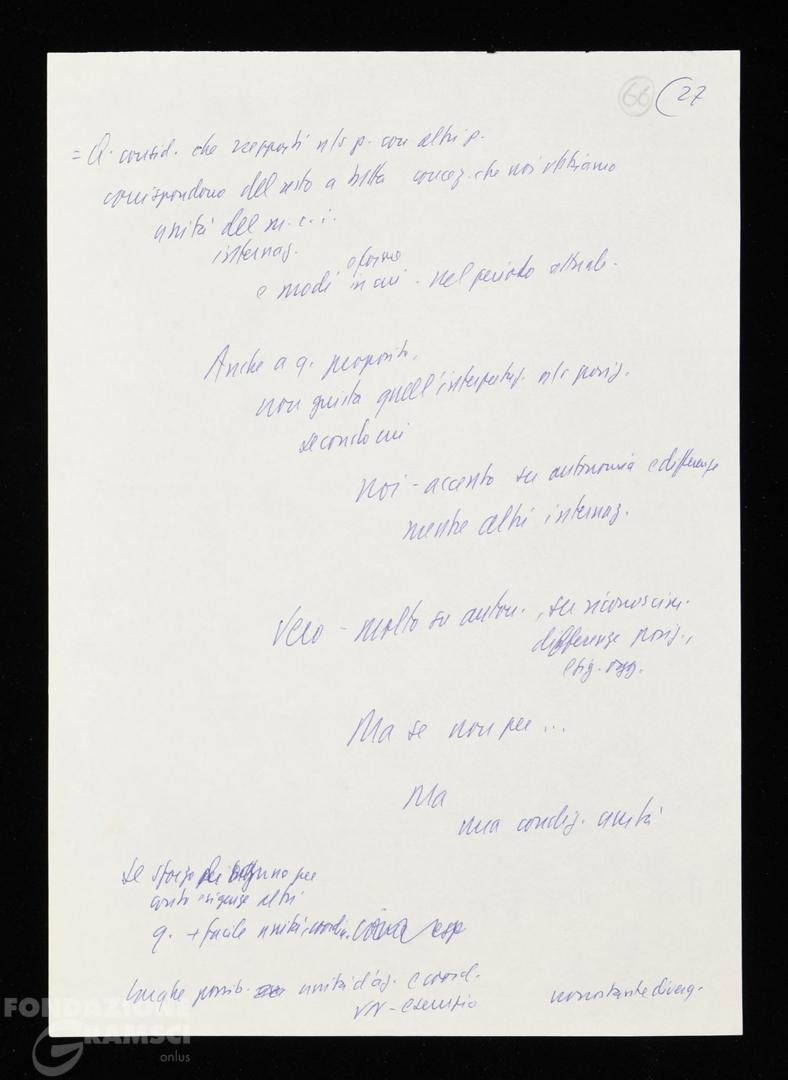 66 (27
= Q. consid. che rapporti n/s p. con altri p.
corrispondono del resto a tutta concez. che noi abbiamo
unità del m. c. i.
internaz.
e forme
e modi in cui - nel periodo attuale.
Anche a q. proposito,
non giusta quell'interpretaz. n/s posiz.
secondo cui
noi - accento su autonomia e differenze
mentre altri internaz.
Vero - molto su auton., su riconoscim.
differenze posiz.,
esig. ogg.
Ma se non per ...
Ma
una condiz. unità
Se sforzo di ognuno per
esigenze altri
q. + facile unità, coordin.
Lunghe possib. unità d'az. e coord.
VN - esempio nonostante diverg.
FONDAZIONE
GRAMSCI
onlus